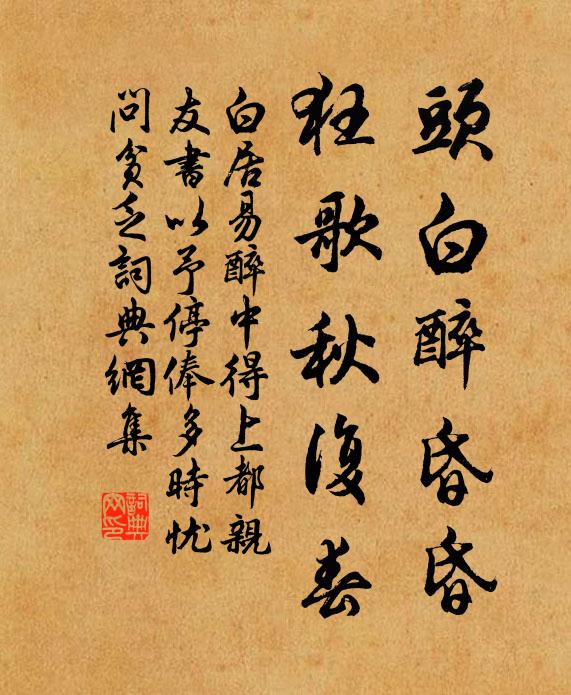 頭白醉昏昏
狂歌秋復春
白居易醉中得上都親
友書以予停俸多時忧
問貧乏詞典網集
詞典
网印